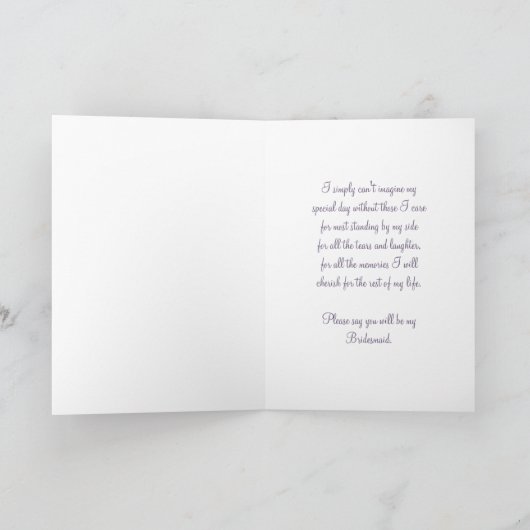 I simply can't imagine my
special day without those I care
for most standing by my side
for all the tears and laughter,
for all the memories I will
cherish for the rest of my life.
Please say you will be my
Bridesmaid.